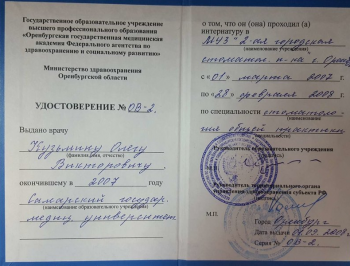 Государственное образовательное учреждение
высшего профессионального образования
«Оренбургская государственная медицинская
академия Федерального агентства по
здравоохранению и социальному развитию»
Министерство здравоохранения
Оренбургской области
УДОСТОВЕРЕНИЕ № ОВ-2.
Выдано врачу
Кузьмину Олегу
Викторовичу
(фамилия, имя, отчество)
окончившему в 2007 году
Самарский государ.
(наименование образовательного учреждения)
медиц университет
о том, что он (она) проходил (а)
интернатуру в
"2-ая городская
(наименование учреждения)
стоматол. п-ка г.
с «01» марта 2007 г
по «28» февраля 2008 г.
по специальности стоматоло-
гия общей практики
(наименование)
Руководитель образовательного учреждения
Руководитель территориального органа
управления здравоохранения субъекта РФ
М.П.
Город Оренбург
Дата выдачи
Серия № ОВ-2.